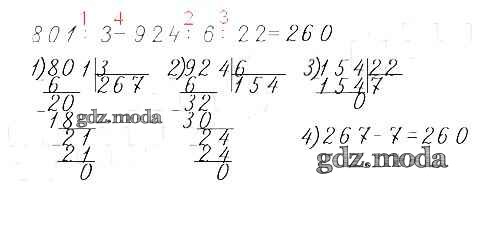 1 4 2 3
801 : 3 - 924 : 6 : 22 = 260
1) 801 | 3 2) 924 | 6 3) 154 | 22
6 267 6 154 154 7
- 20 - 32 0
18 30
gdz.moda
- 21 - 24 4) 267 - 7 = 260
21 24
gdz.moda
0 0